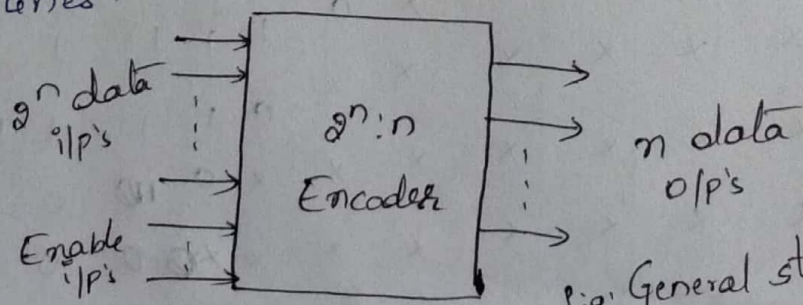 2ⁿ data
i/p's
Enable
i/p's
2ⁿ:n
Encoder
n data
o/p's
fig: General st